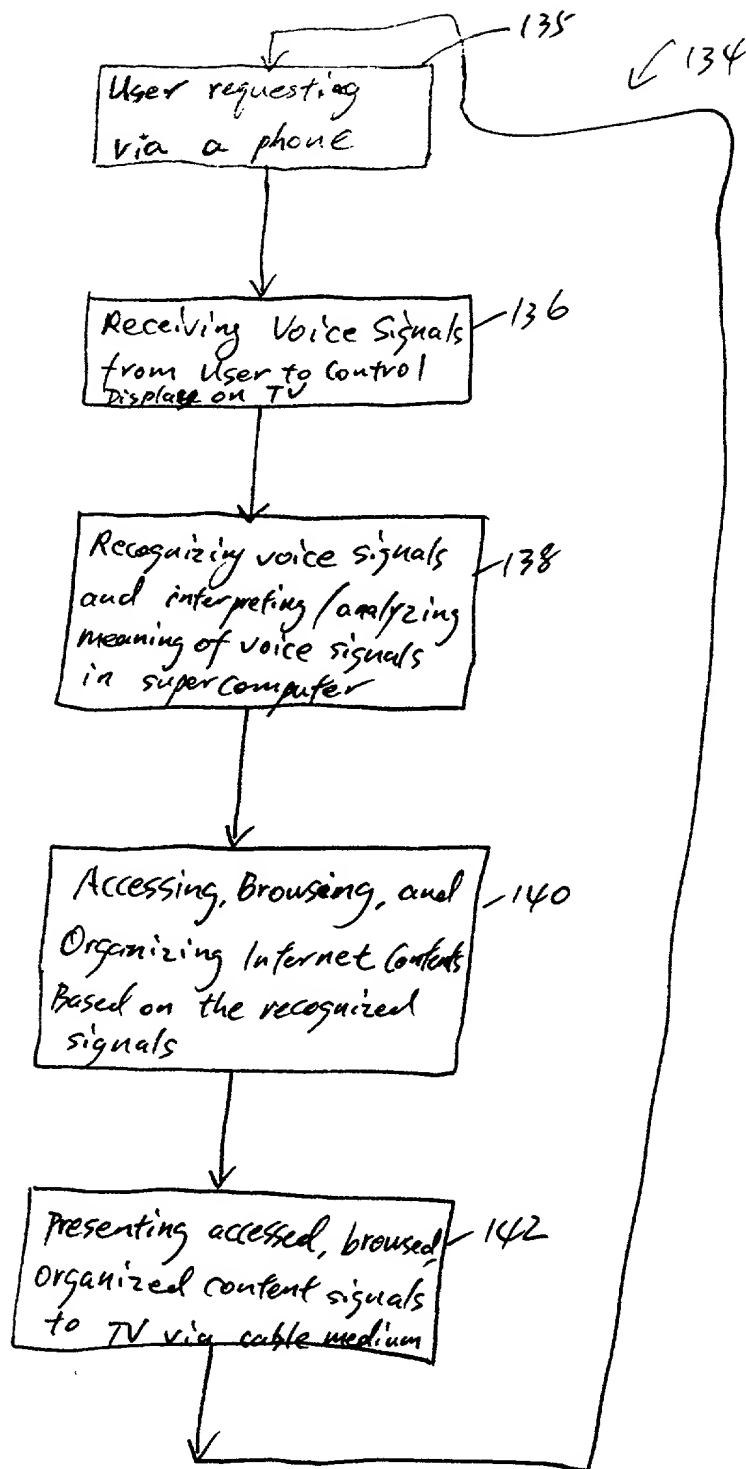 135
134
User requesting
via a phone
Receiving Voice Signals
from User to Control
Display on TV
136
Recognizing voice signals
and interpreting/analyzing
meaning of voice signals
in supercomputer
138
Accessing, Browsing, and
Organizing Internet Contents
Based on the recognized
signals
140
Presenting accessed, browsed,
organized content signals
to TV via cable medium
142